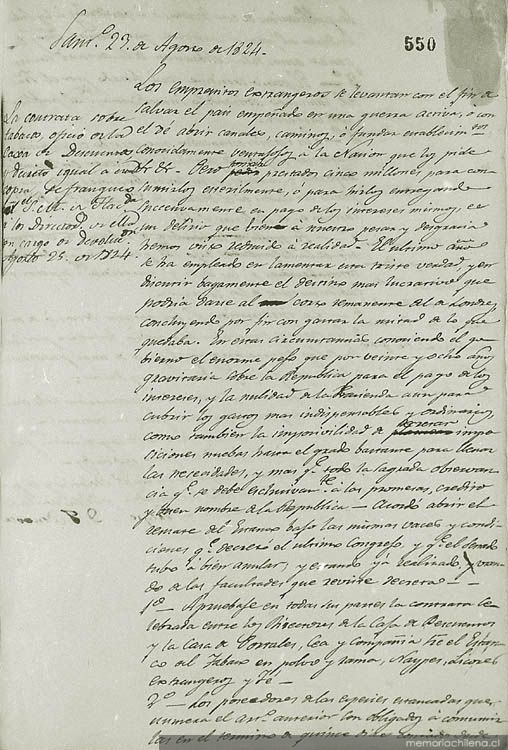 Sant.º 23. de Agosto de 1824.
550
La contrata sobre
tabaco, ofició en la
Caxa de Descuentos
y decreto igual a
copia se franqueo
a los Director.
cargo
Agosto 25. de 1824.
Los Emprestitos extrangeros se levantan con el fin de
salvar el pais empeñado en una guerra activa, o con
el de abrir canales, caminos, ó fundar establecim.tos
conocidamente ventajosos á la Nacion que los pide
&c &c. Pero prestados cinco millones, para con-
sumirlos esterilmente, ó para irlos entregando
succesivamente en pago de los intereses mismos, es
un delirio que bien á nuestro pesar y desgracia
hemos visto reducido á realidad. El ultimo año
se ha empleado en lamentar esta triste verdad, y en
discurrir bagamente el destino mas lucrativo que
podria darse al corto remanente del de Londres,
concluyendo por fin con gastar la mitad de lo que
quedaba. En estas circunstancias conociendo el go-
bierno el enorme peso que por veinte y ocho años
gravitaria sobre la Republica para el pago de los
intereses, y la nulidad de la Hacienda aun para
cubrir los gastos mas indispensables y ordinarios,
como tambien la imposivilidad de decretar impo-
siciones nuevas hasta el grado bastante para llenar
las necesidades, y mas q.e todo la sagrada observan-
cia q.e se debe esclusivam.te á las promesas, credito
y buen nombre de la Republica — Acordó abrir el
remate del Estanco bajo las mismas vases y condi-
ciones q.e decretó el ultimo Congreso, y q.e el Senado
tubo á bien anular, y estando yá realizado, usan-
do de las facultades que reviste decreta —
1.º — Apruebase en todas sus partes la contrata ce-
lebrada entre los Directores de la Caja de Descuentos
y la Casa de Portales, Cea y Compañia s̃re el Estan-
co del Tabaco en polvo y rama, Naypes, Licores
extrangeros y Té —
2.º — Los poseedores de las especies estancadas que
numera el art.º anterior son obligados á comunicar-
las en el termino de quince dias
memoriachilena.cl